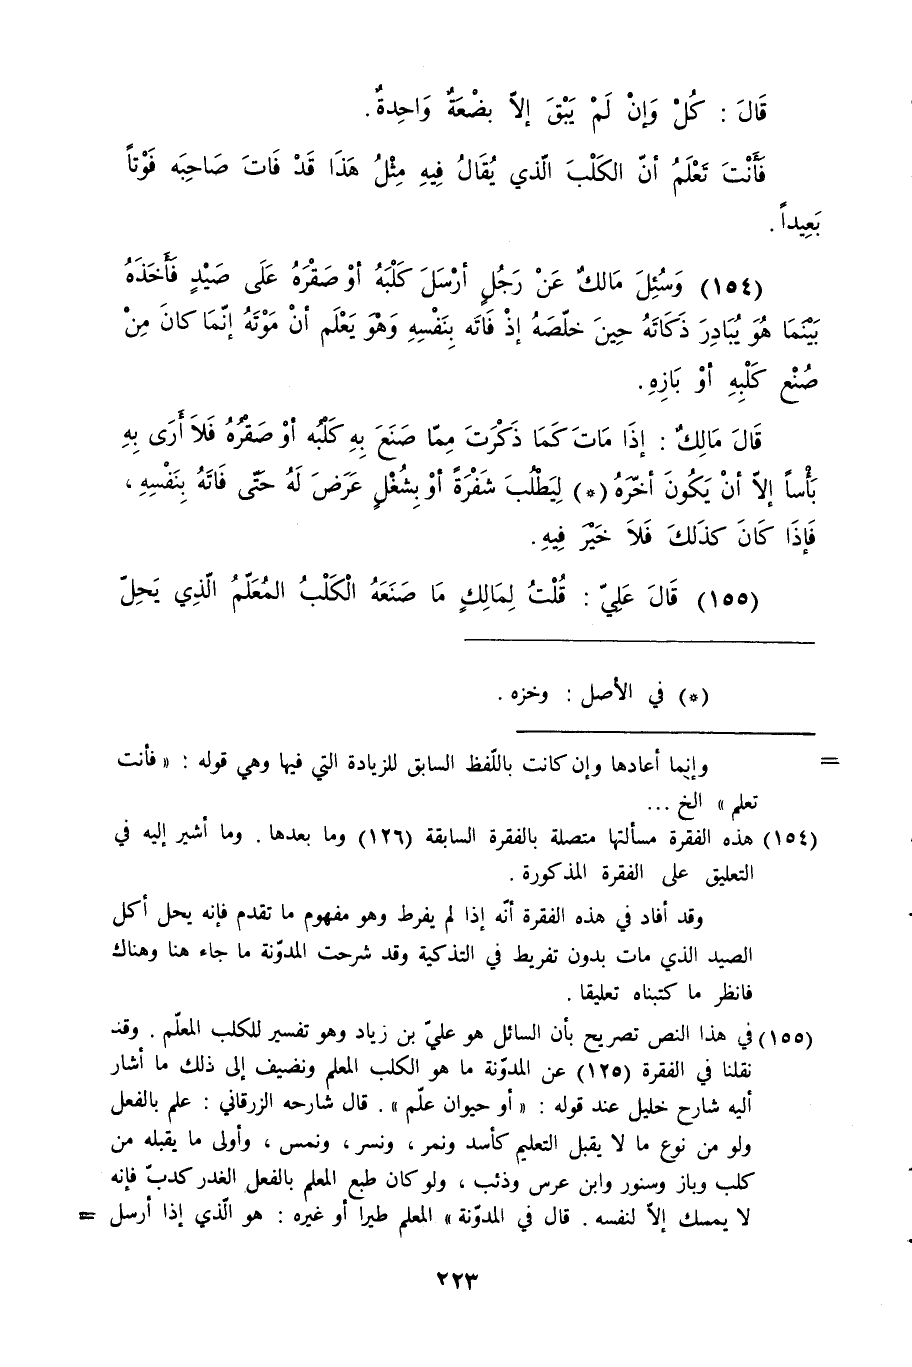 قَالَ : كُلْ وَإنْ لَمْ يَبْقَ إلاّ بضْعَةٌ وَاحِدةٌ.
فَأَنْتَ تَعْلَمُ أنّ الكَلْبَ الّذي يُقَالُ فِيهِ مِثْلُ هَذَا قَدْ فَاتَ صَاحِبَه فَوْتاً
بَعِيداً .
(١٥٤) وَسُئِلَ مَالكٌ عَنْ رَجُلٍ أرْسَلَ كَلْبَهُ أوْ صَقْرَهُ عَلَى صَيْدٍ فَأَخَذَهُ
بَيْنَمَا هُوَ يُبَادِرَ ذَكَاتَهُ حِينَ خلّصَهُ إذْ فَاتَه بِنَفْسِهِ وَهْوَ يَعْلَم أنْ مَوْتَهُ إنّمَا كانَ مِنْ
صُنْعِ كَلْبِهِ أوْ بَازِهِ.
قَالَ مَالِكٌ : إذَا مَاتَ كَمَا ذَكَرْتَ مِمّا صَنَعَ بِهِ كَلْبُه أوْ صَقْرُهُ فَلاَ أَرَى بِهِ
بَأْساً إلاّ أنْ يَكُونَ أخّرَهُ (*) لِيَطْلُبَ شَفْرَةً أوْ بِشُغْلٍ عَرَضَ لَهُ حَتّى فَاتَهُ بِنَفْسِهِ ،
فَإذَا كَانَ كذلكَ فَلاَ خَيْرَ فِيهِ.
(١٥٥) قَالَ عَلِيّ : قُلْتُ لِمَالِكٍ مَا صَنَعَهُ الْكَلْبُ المُعَلّمُ الّذِي يَحِلّ
(*) في الأصل : وخزه .
= وإنما أعادها وإن كانت باللّفظ السابق للزيادة التي فيها وهي قوله : « فأنت
تعلم » الخ ...
(١٥٤) هذه الفقرة مسألتها متصلة بالفقرة السابقة (١٢٦) وما بعدها . وما أشير إليه في
التعليق على الفقرة المذكورة .
وقد أفاد في هذه الفقرة أنّه إذا لم يفرط وهو مفهوم ما تقدم فإنه يحل أكل
الصيد الذي مات بدون تفريط في التذكية وقد شرحت المدوّنة ما جاء هنا وهناك
فانظر ما كتبناه تعليقا .
(١٥٥) في هذا النص تصريح بأن السائل هو عليّ بن زياد وهو تفسير للكلب المعلّم . وقد
نقلنا في الفقرة (١٢٥) عن المدوّنة ما هو الكلب المعلم ونضيف إلى ذلك ما أشار
أليه شارح خليل عند قوله : « أو حيوان علّم » . قال شارحه الزرقاني : علم بالفعل
ولو من نوع ما لا يقبل التعليم كأسد ونمر ، ونسر ، ونمس ، وأولى ما يقبله من
كلب وباز وسنور وابن عرس وذئب ، ولو كان طبع المعلم بالفعل الغدر كدبّ فإنه
لا يمسك إلاّ لنفسه . قال في المدوّنة » المعلم طيرا أو غيره : هو الّذي إذا أرسل =
٢٢٣